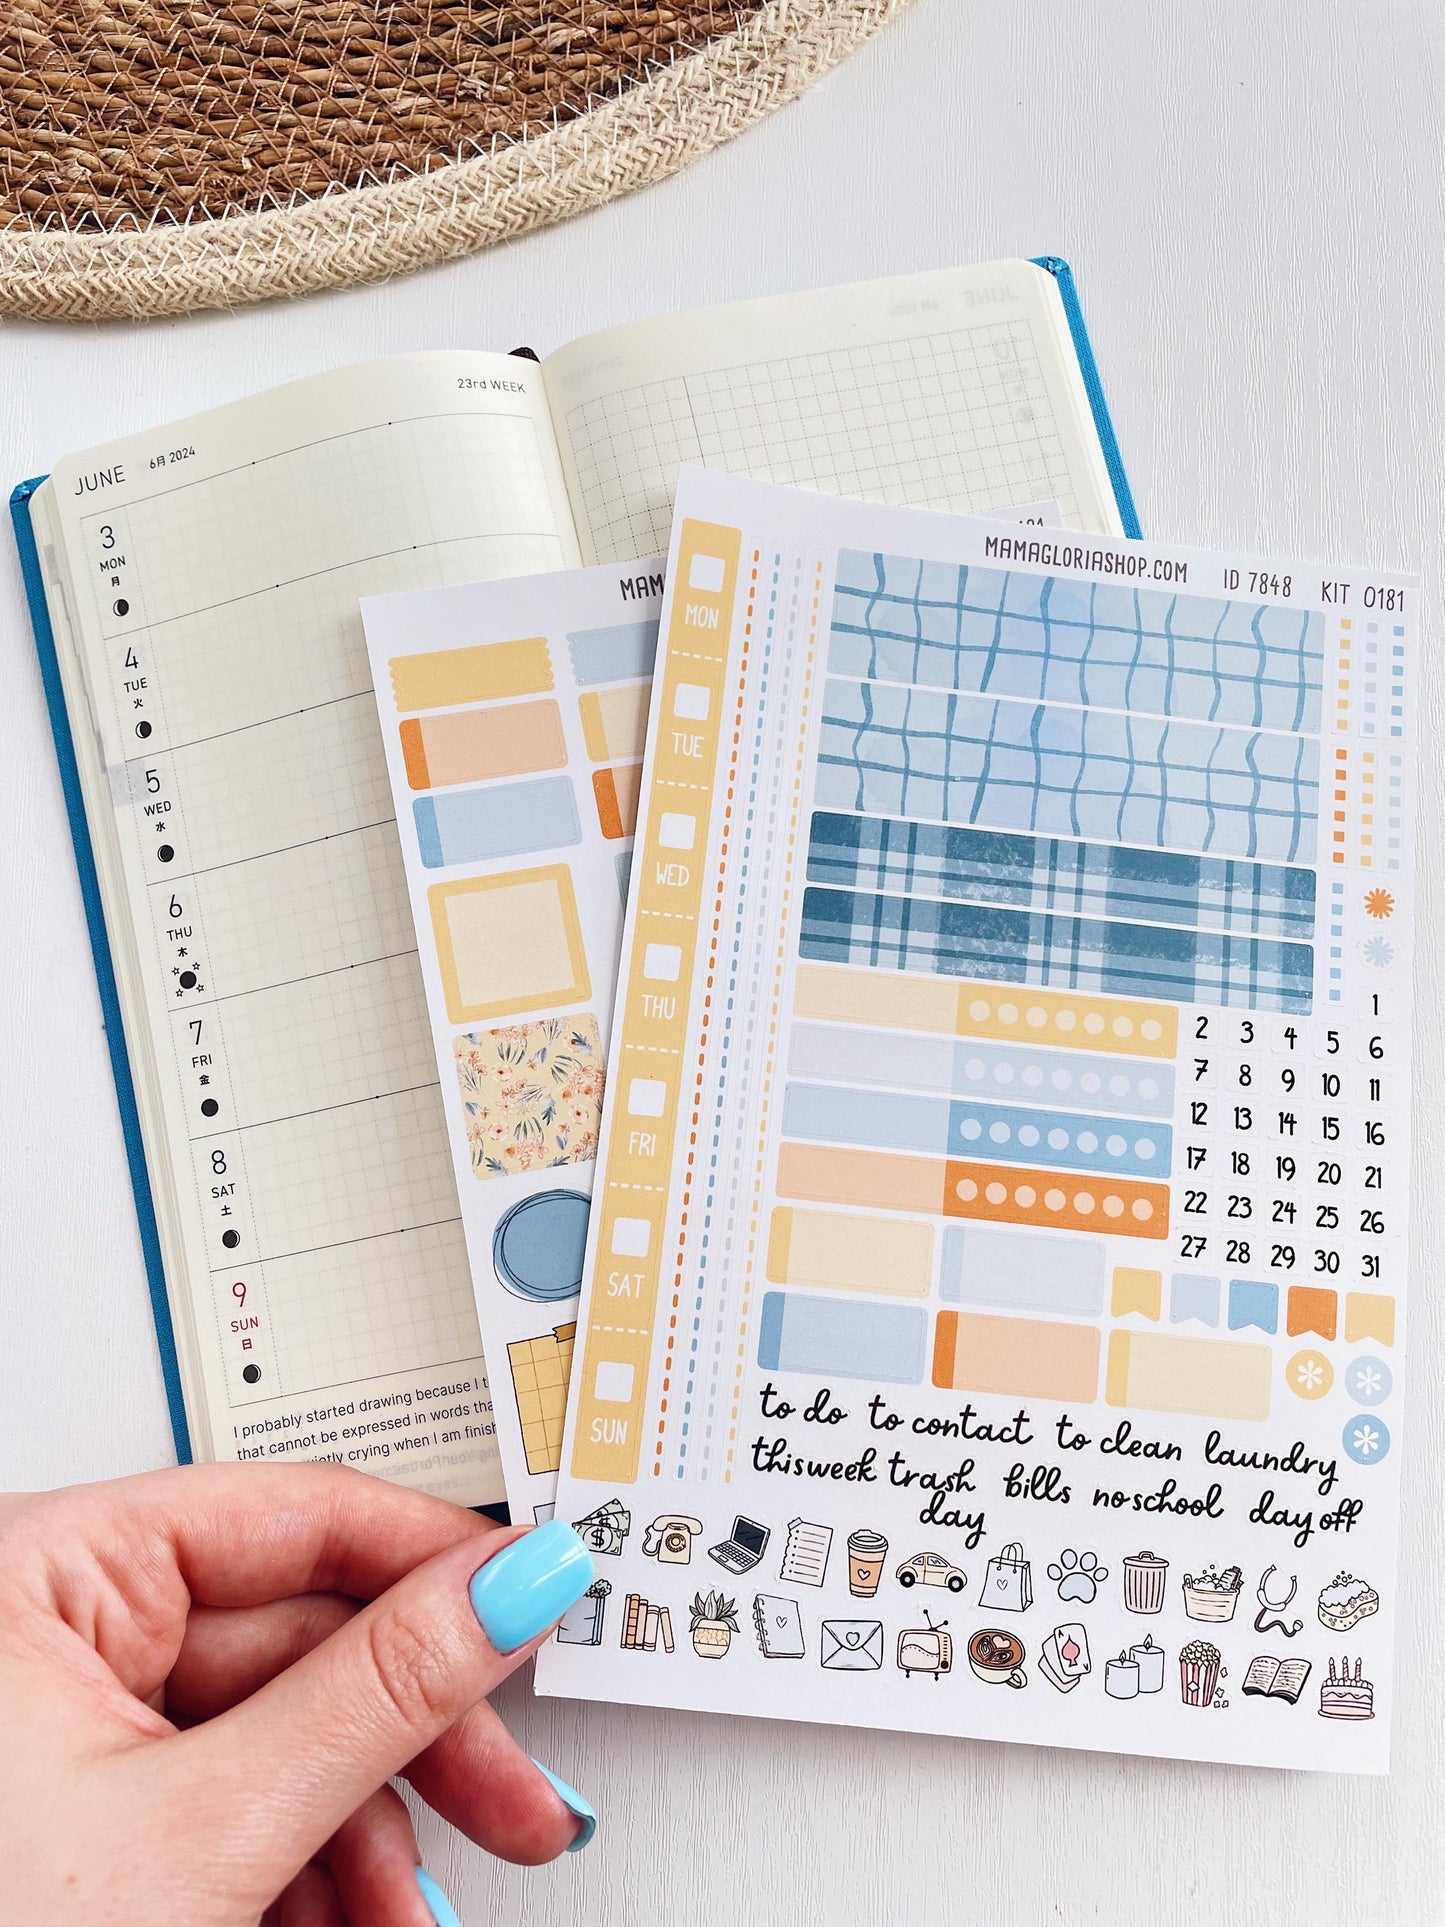 23rd WEEK
JUNE 6月 2024
3
MON
月
4
TUE
火
5
WED
水
6
THU
木
7
FRI
金
8
SAT
土
9
SUN
日
I probably started drawing because I
that cannot be expressed in words
crying when I am
MAMAGLORIASHOP.COM ID 7848 KIT 0181
MON
TUE
WED
THU
FRI
SAT
SUN
1
2 3 4 5 6
7 8 9 10 11
12 13 14 15 16
17 18 19 20 21
22 23 24 25 26
27 28 29 30 31
to do to contact to clean laundry
this week trash day bills no school day off